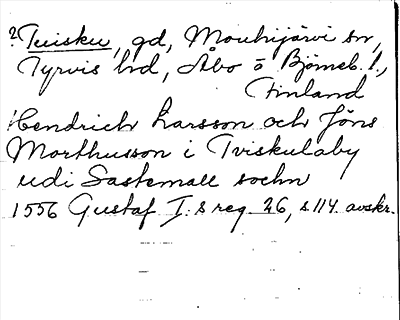 ?Tuisku, gd, Mouhijärvi sn,
Tyrvis hd, Åbo o Björneb. l.,
Finland
Hendrich Larsson och Jöns
Morthusson i Tviskulaby
udi Sastemall sochn
1556 Gustaf I:s reg. 26, s 114. avskr.